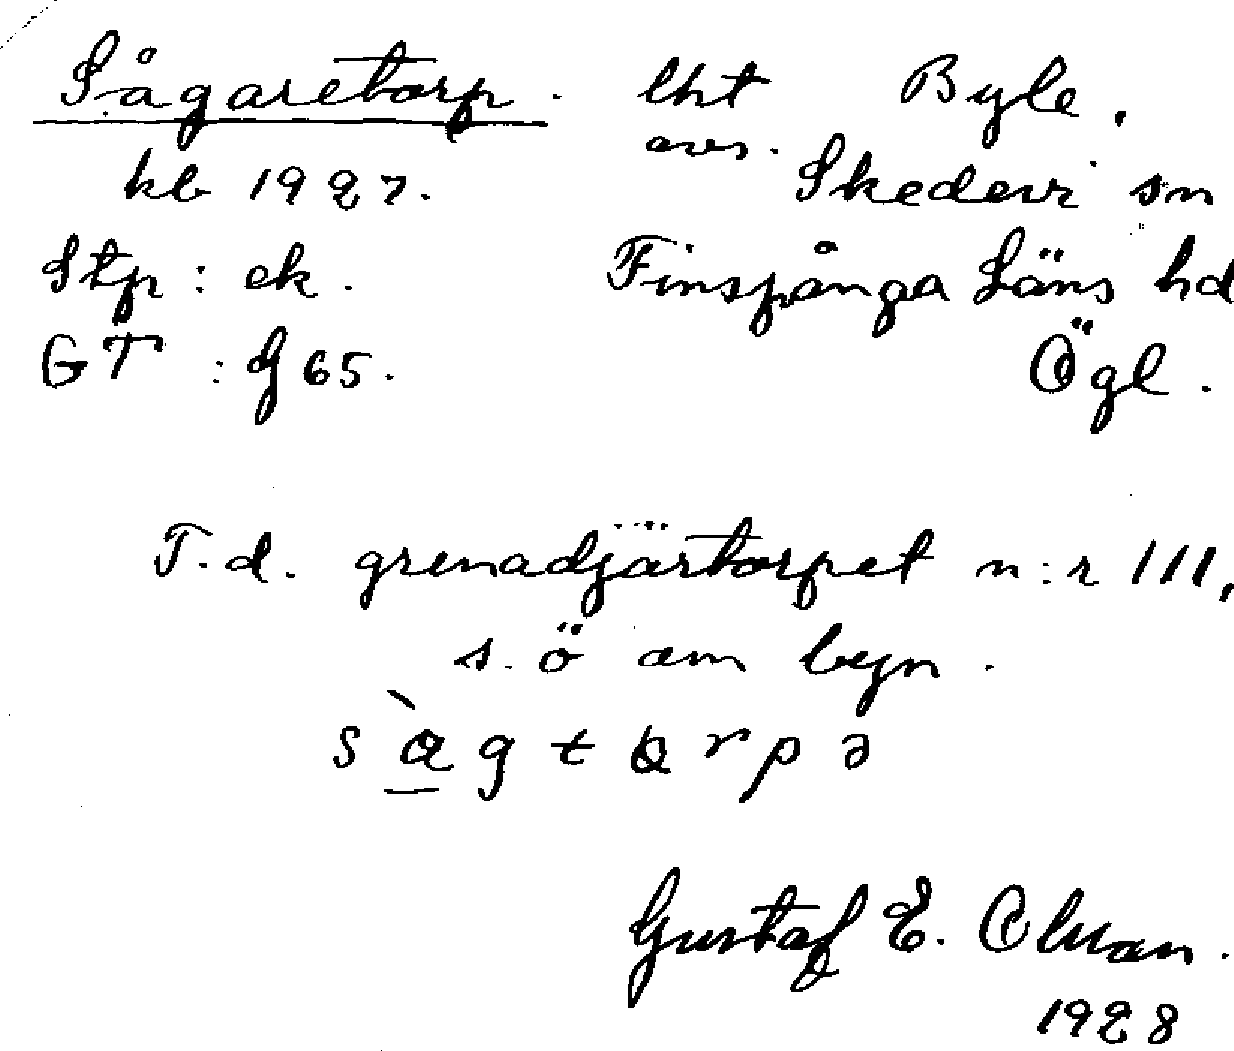 Sågaretorp. lht Byle.
avs.
kb 1927. Skedevi sn
Stp: ek. Finspånga Läns hd
GT: J 65. Ögl.
F.d. grenadjärtorpet n:r 111,
s.ö om byn.
Gustaf E. Olsson.
1928